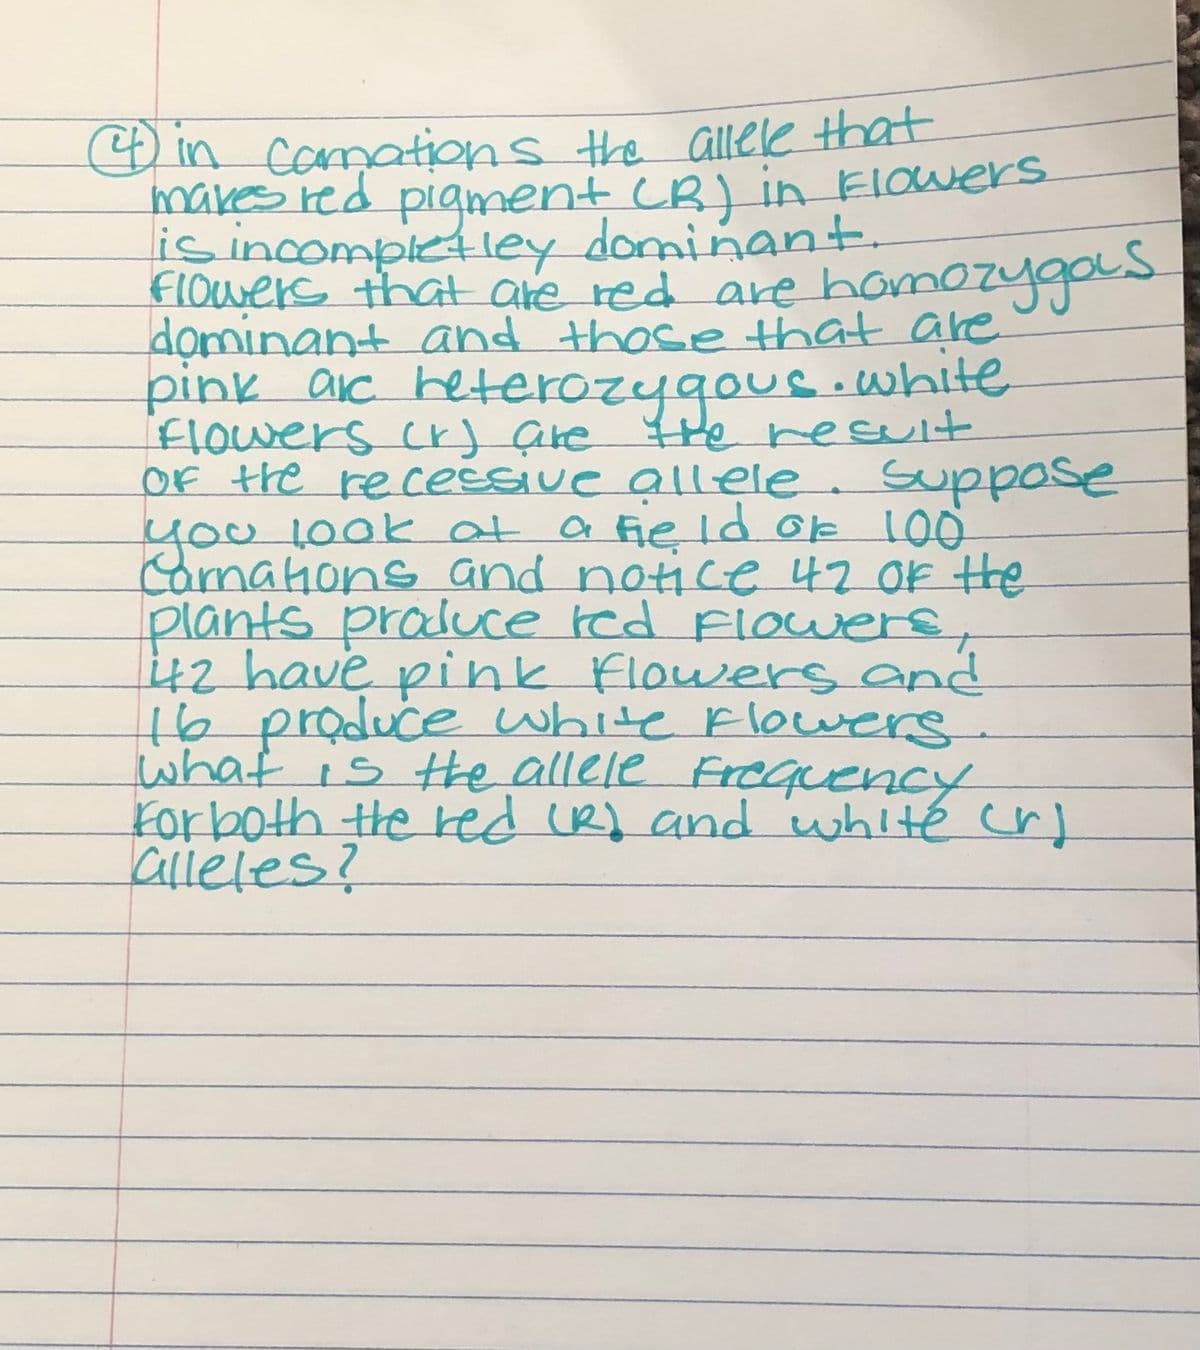 ④ in carnations the allele that
makes red pigment (R) in Flowers
is incompletley dominant.
Flowers that are red are homozygous
dominant and those that are
pink are heterozygous. white
Flowers (r) are the result
OF the recessive allele. Suppose
you look at a field OF 100
Carnations and notice 42 OF the
plants produce red Flowers,
42 have pink Flowers and
16 produce white Flowers.
what is the allele Frequency
For both the red (R) and white (r)
alleles?